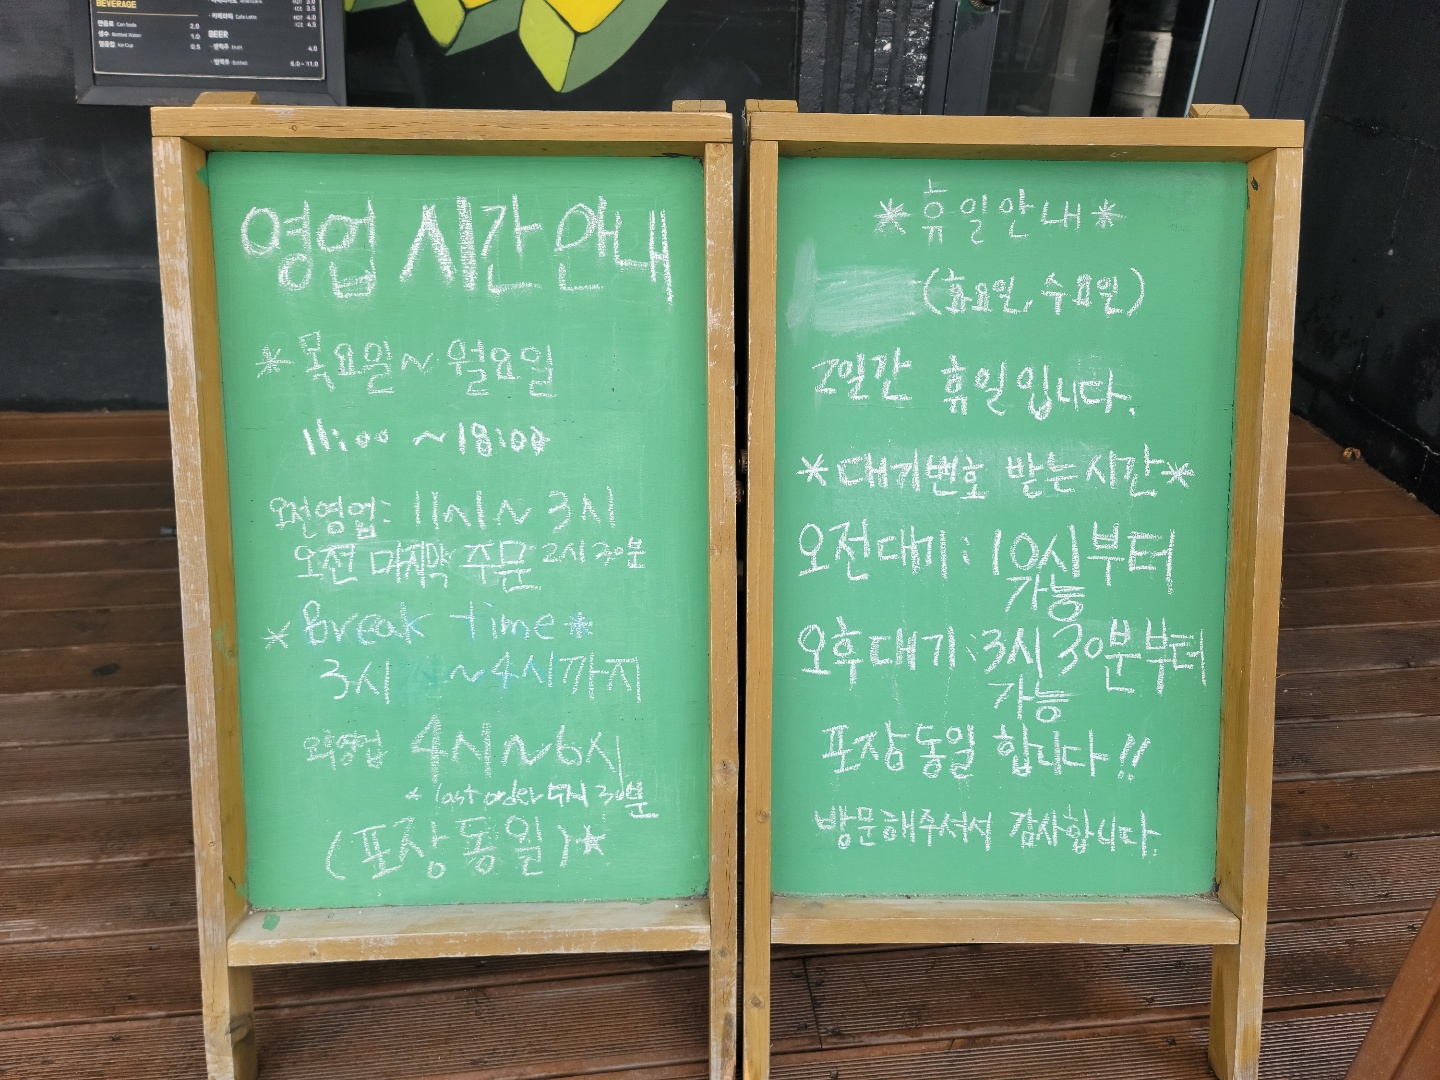 BEVERAGE
캔음료 Can Soda 2.0
생수 Bottled Water 1.0
얼음컵 Ice Cup 0.5
· 카페라떼 Cafe Latte HOT 4.0
ICE 4.5
BEER
· 생맥주 Draft 4.0
· 병맥주 Bottled 6.0~11.0
영업 시간 안내
* 목요일 ~ 월요일
11:00 ~ 18:00
오전영업: 11시 ~ 3시
오전 마지막 주문 2시 30분
* Break time *
3시 ~ 4시까지
오후영업 4시 ~ 6시
* last order 5시 30분
(포장 동일) *
* 휴일안내 *
(화요일, 수요일)
2일간 휴일입니다.
* 대기번호 받는시간 *
오전대기 : 10시부터
가능
오후대기 : 3시 30분부터
가능
포장동일 합니다!!
방문해주셔서 감사합니다.